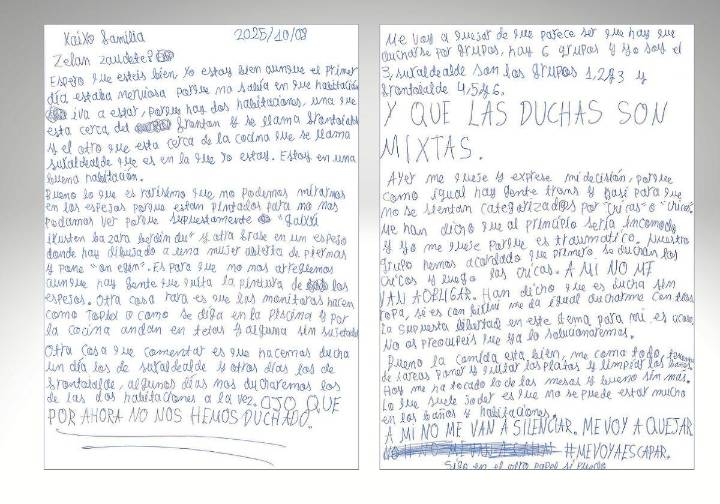 Kaixo familia 2025/10/09
Zelan zaudete?
Espero que esteis bien. Yo estoy bien aunque el primer
día estaba nerviosa porque no sabía en que habitación
iva a estar, porque hay dos habitaciones, una que
esta cerca del fronton y se llama frontoialde
y el otro que esta cerca de la cocina que se llama
sukaldealde que es en la que yo estoy. Estoy en una
buena habitación.
Bueno lo que es rarísimo que no podemos mirarnos
en los espejos porque estan pintados para no nos
podamos ver porque supuestamente "
ikusten ba zara berdin du" y otra frase en un espejo
donde hay dibujado a una mujer abierta de piernas
y pone "on egin". Es para que no nos arreglemos
aunque hay gente que quita la pintura de los
espejos. Otra cosa rara es que las monitoras hacen
como Topless o como se diga en la piscina y por
la cocina andan en tetas y alguna sin sujetador
Otra cosa que comentar es que hacemos ducha
un día los de sukaldealde y otros días los de
frontoialde, algunos días nos ducharemos los
de las dos habitaciones a la vez. OJO QUE
POR AHORA NO NOS HEMOS DUCHADO.
Me voy a quejar de que parece ser que hay que
ducharse por grupos, hay 6 grupos y yo soy el
3, sukaldealde son los grupos 1,2 y 3 y
frontoialde 4,5 y 6.
Y QUE LAS DUCHAS SON
MIXTAS.
Ayer me queje y exprese mi decisión, porque
como igual hay gente trans y para que
no se sientan categorizados por "chicas" o "chicos".
Me han dicho que al principio sería incomodo
y yo me queje porque es traumatico. Nuestro
grupo hemos acordado que primero se duchan los
chicos y luego las chicas. A MI NO ME
VAN A OBLIGAR. Han dicho que es ducha sin
ropa, si es con bikini me da igual ducharme con
La supuesta libertad en este tema para mi es
No os preocupeis que ya lo solucionaremos.
Bueno la comida esta bien, me como todo, tenemos
de tareas poner y quitar los platos y limpiar los baños
Hoy me ha tocado lo de las mesas y bueno sin más.
Lo que suele joder es que no se puede estar mucho
en los baños y habitaciones.
A MI NO ME VAN A SILENCIAR. ME VOY A QUEJAR
#MEVOYAESCAPAR.
Sigo en el otro papel si puedo